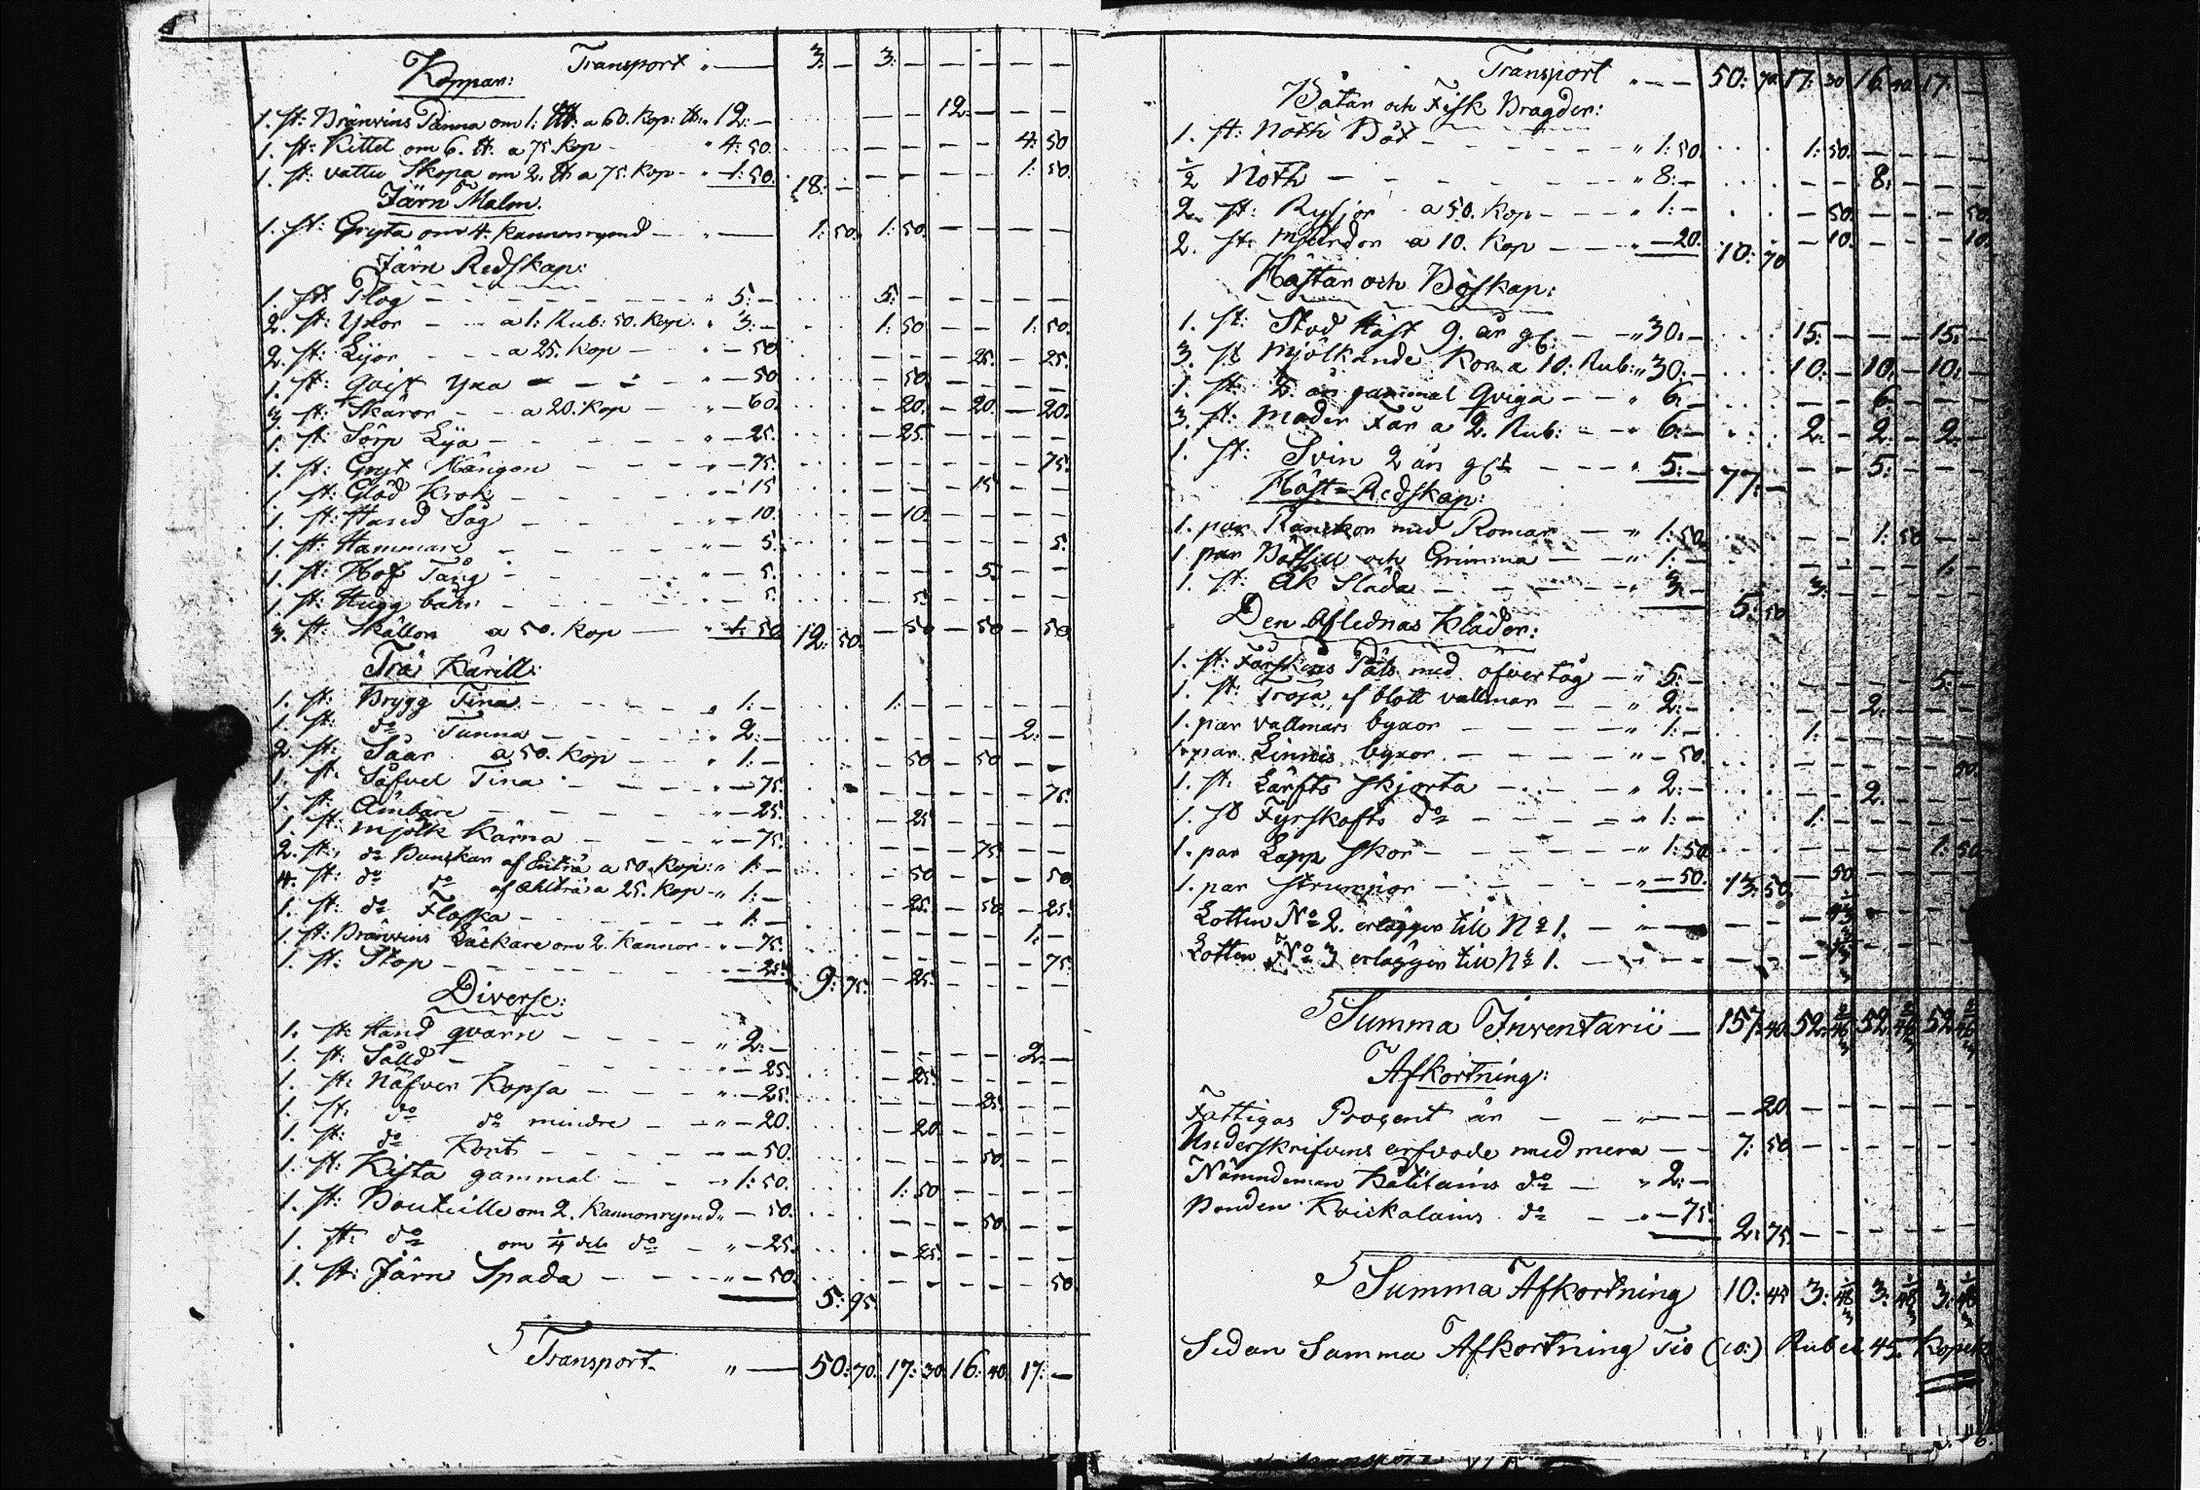 Transport " — 3: — 3: — — — — —
Koppar:
1. st: Bränvins Panna om 1: ℔ a 60. Kop: ℔ " 12: — — — 12: — — —
1. st: Kittel om 6. ℔. a 75 Kop - " 4: 50. — — — — 4: 50
1. st: vattu Skopa om 2. ℔ a 75. Kop - " 1: 50. 18: — 1: 50.
Järn Malm.
1. st: Gryta om 4. kannorsrymd — " — 1: 50. 1: 50. — — — —
Järn Redskap:
1. st: Plog — " 5: — 5: — — — — —
2. st: Yxor — a 1: Rub: 50. Kop: " 3: — 1: 50 — — 1: 50.
2. st: Lyor — a 25. Kop — " — 50 — — — 25. — 25.
1. st: qvist Yxa — " — 50 — 50. — — — —
3. st: Skäror — a 20. Kop — " — 60. — 20. — 20. — 20.
1. st: Sörp Lya — " — 25. — 25. — — — —
1. st: Gryt Hängen — " — 75. — — — — — 75.
1. st: Glöd Krok — " — 15 — — — 15 — —
1. st: Hand Såg — " — 10. — 10. — — — —
1. st: Hammare — " — 5. — — — — — 5.
1. st: Hof Tång — " — 5. — — — 5. — —
1. st: Hugg bahn — " — 5. — 5. — — — —
3. st: Skällor a 50. Kop — " 1: 50 12: 50. — 50 — 50 — 50
Trä Kärill:
1. st: Brygg Tina — " 1: — 1: — — — — —
1. st: do Tunna — " 2: — — — — — 2: —
2. st: Såar a 50. Kop — " 1: — — 50 — 50 — —
1. st: Såfvel Tina — " — 75. — — — — — 75.
1. st: Ämbare — " — 25. — 25 — — — —
1. st: Mjölk Kärna — " — 75. — — — 75 — —
2. st: do Bunckar af Enträ a 50. Kop: " 1: — — 50 — — — 50
4. st: do do af Ahlträ a 25. Kop " 1: — — 25. — 50 — 25.
1. st: do Flaska — " 1: — — — — — 1: —
1. st: Bränvins Läckare om 2. Kannor — " — 75. — — — — — 75.
1. st: Stop — " — 25. 9: 75. — 25. — — — —
Diverse:
1. st: Hand qvarn — " 2: — — — — — 2: —
1. st: Sålld — " — 25. — 25. — — — —
1. st: Näfver Kopsa — " — 25. — — — 25 — —
1. st: do do mindre — " — 20. — 20. — — — —
1. st: do Kont — " — 50. — — — 50. — —
1. st: Kista gammal — " 1: 50. 1: 50 — — — —
1. st: Bouteille om 2. Kannorsrymd " — 50. — — — 50. — —
1. st: do om 1/4 dels do — " — 25. — 25. — — — —
1. st: Järn Spada — " — 50. 5: 95. — — — — — 50
Transport " — 50: 70. 17: 30. 16: 40. 17: —
Transport " — 50: 70. 17: 30 16: 40. 17: —
Båtar och Fisk Bragder:
1. st: Noth Båt — " 1: 50. 1: 50. — — — —
1/2 Noth — " 8: — — — 8: — — —
2. st: Rysjor a 50. Kop — " 1: — — 50. — — — 50.
2. st: Mjerdor a 10. Kop — " — 20. 10: 70 — 10. — — — 10.
Hästar och Boskap:
1. st: Stod Häst 9. år gl: — " 30: — 15: — — — 15: —
3. st Mjölkande Kor a 10: Rub: " 30: — 10: — 10: — 10: —
1. st: 2. år gammal Qviga — " 6: — — — 6: — — —
3. st: Moder Får a 2. Rub: — " 6: — 2: — 2: — 2: —
1. st: Svin 2 års glt — " 5: — 77: — — — 5: — — —
Häst = Redskap:
1. par Ranckor med Romar — " 1: 50 1: 50
1 par Bötsill och Grimma — " 1: — 1: —
1. st: Åk Släda — " 3: — 5: 50 3: — — — — —
Den Aflednas Kläder:
1. st: Fårskins Päls med öfvertåg — " 5: — 5: —
1. st: Tröja af blått vallmar — " 2: — 2: —
1. par vallmars byxor — " 1: — 1: —
1. par Linnis byxor — " — 50. 50.
1. st: Lärfts skjorta — " 2: — 2. —
1. st Fyrskafts do — " 1: — 1: —
1. par Lapp skor — " 1: 50 1: 50
1. par strumpor — " — 50. 13: 50. 50.
Lotten No 2. erlägger till No 1. —
Lotten No 3 erlägger till No 1. —
Summa Inventarii — 157: 40. 52: 46 2/3 52: 46 2/3 52: 46 2/3
Afkortning:
Fattigas Procent är — " — — 20. — — — — — —
Underskrifvens arfvode med mera — 7: 50 — — — — — —
Nämndeman Hålitains do — " 2: —
Bonden Kvickalains do — " — 75. 2: 75. — — — — — —
Summa Afkortning 10: 45 3: 48 1/3 3: 48 1/3 3: 48 1/3
Sedan Summa Afkortning Tio (10:) Rubel 45. Kopek